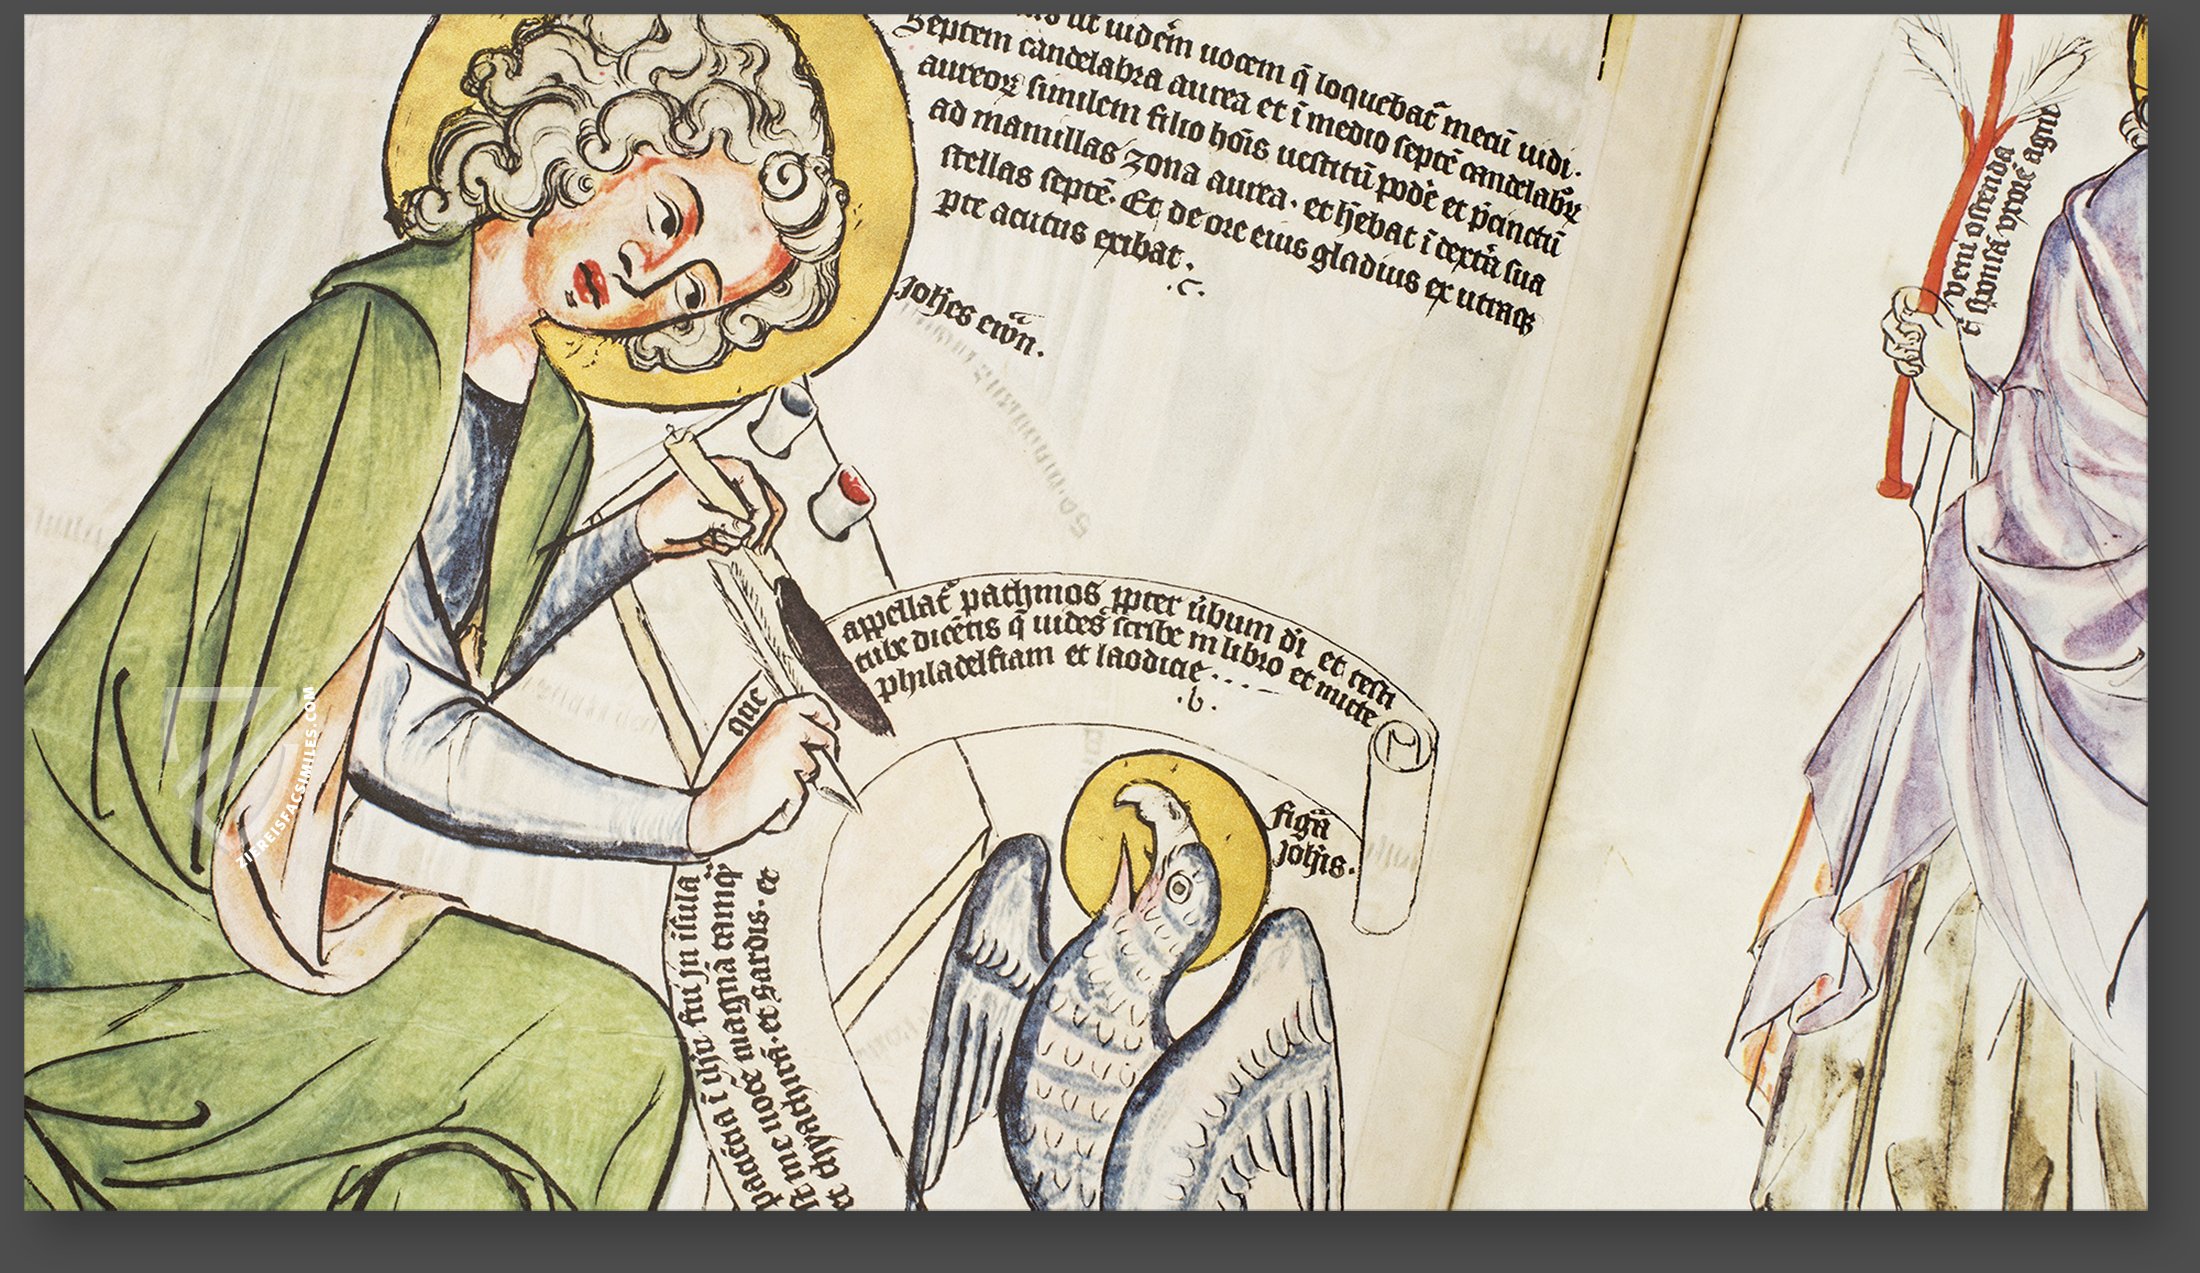 ut uidēm uocem q̄ loquebat᷑ mecū uidi.
Septem candelabra aurea et ī medio septē candelabꝝ
aureoꝝ similem filio hoīs uestitū podē et p̄cinctū
ad mamillas zona aurea. et hēbat ī dextā sua
stellas septē. Et de ore eius gladius ex utraqꝫ
pte acutus exibat.
.c.
Joh̄es ewān.
appellat᷑ pathmos ꝓpter ūbum dī et testi
tube dicētis q̄ uides scribe in libro et mitte
philadelfiam et laodicie....
.b.
que
paciēcia ī ih̄u fui jn īsula
me uocē magnā tamqᷓ
et thyathirā. et sardis. et
figūa
Joh̄is.
veni ostendā
t̄ sponsā vxorē agni
ZIEREISFACSIMILES.COM